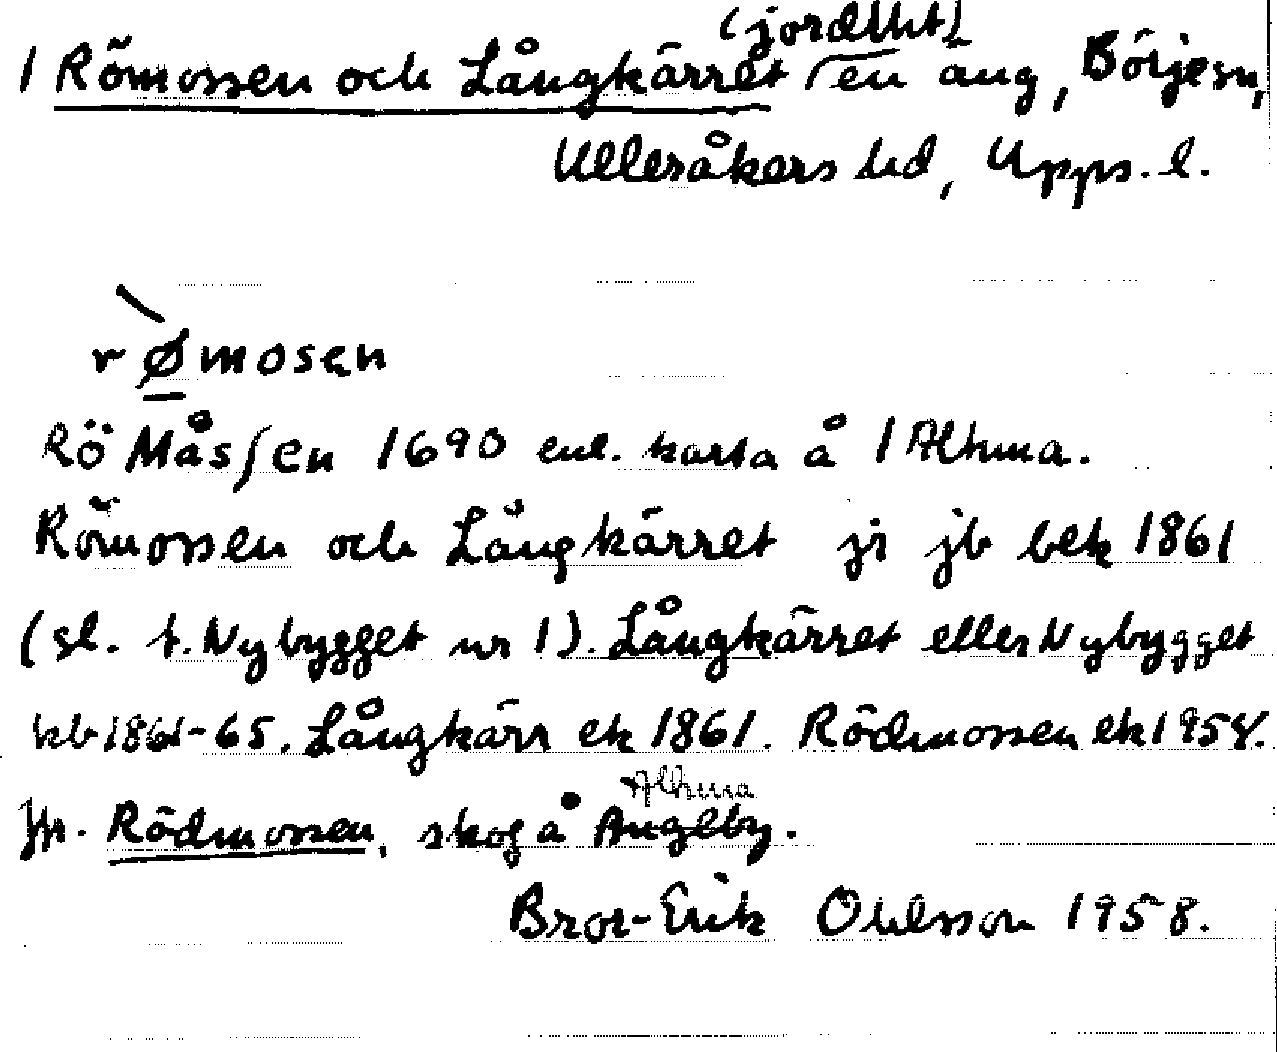 (jordlht)
1 Römossen och Långkärret en äng, Börje sn,
Ulleråkers hd, Upps. l.
rømosen
Rö Måsſen 1690 enl. karta å 1 Altuna.
Römossen och Långkärret ji jb bek 1861
(sl. t. Nybygget nr 1). Långkärret eller Nybygget
kb 1861-65. Långkärr ek 1861. Rödmossen ek 1958.
Jfr. Rödmossen, skog å Ängeby.
Bror-Erik Ohlsson 1958.